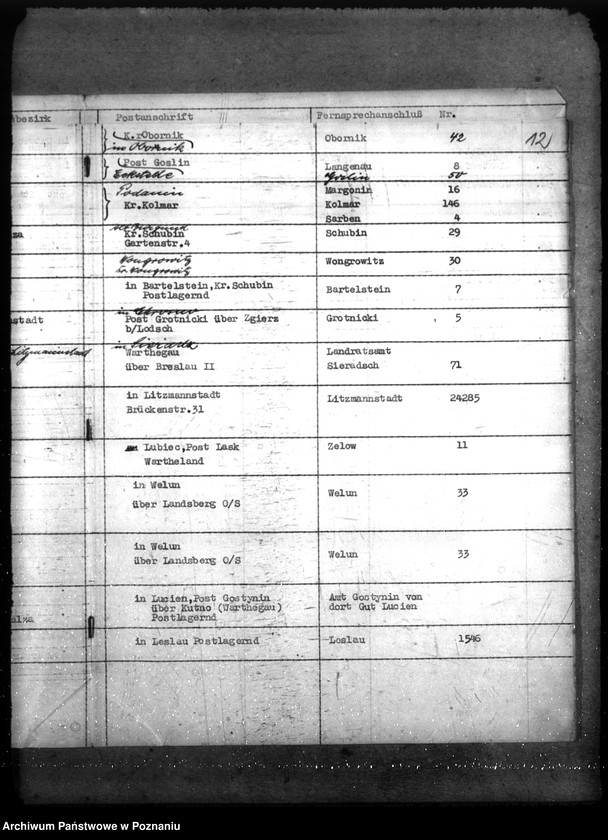 bezirk Postanschrift Fernsprechanschluß Nr.
K.rObornik
in Obornik
Obornik 42 12
Post Goslin
Eckstelle
Langenau 8
Goslin 50
Podanin
Kr.Kolmar
Margonin 16
Kolmar 146
Sarben 4
za
Kr.Schubin
Gartenstr.4
Schubin 29
Wongrowitz
Kr. Wongrowitz
Wongrowitz 30
in Bartelstein,Kr.Schubin
Postlagernd
Bartelstein 7
nstadt
in
Post Grotnicki über Zgierz
b/Lodsch
Grotnicki 5
Litzmannstadt
in
Warthegau
über Breslau II
Landratsamt
Sieradsch 71
in Litzmannstadt
Brückenstr.31
Litzmannstadt 24285
Lubiec,Post Lask
Wartheland
Zelow 11
in Welun
über Landsberg O/S
Welun 33
in Welun
über Landsberg O/S
Welun 33
alza
in Lucien,Post Gostynin
über Kutno (Warthegau)
Postlagernd
Amt Gostynin von
dort Gut Lucien
in Leslau Postlagernd
Leslau 1546
Archiwum Państwowe w Poznaniu